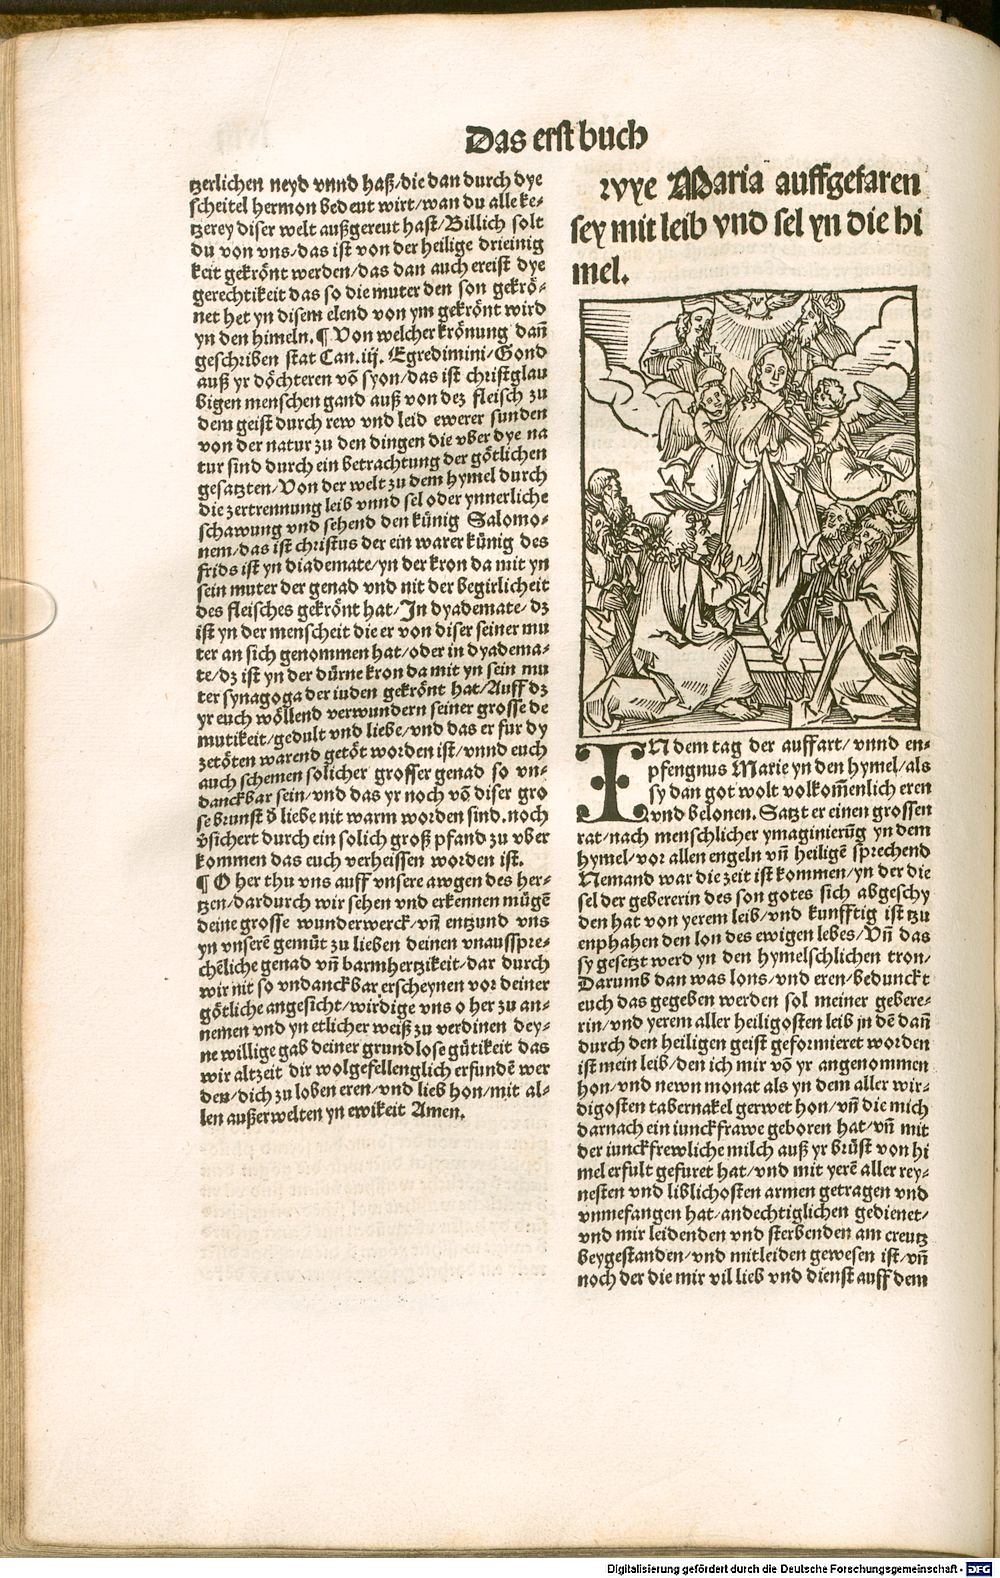 Das erst buch
tzerlichen neyd vnnd haß/die dan durch dye
scheitel hermon bedeut wirt/wan du alle ke-
tzerey diser welt außgereut hast/Billich solt
du von vns/das ist von der heilige drieinig
keit gekrönt werden/das dan auch ereist dye
gerechtikeit das so die muter den son gekrö-
net het yn disem elend von ym gekrönt wird
yn den himeln.¶ Von welcher krönung dañ
geschriben stat Can.iij. Egredimini/Gond
auß yr döchteren võ syon/das ist christglau
bigen menschen gand auß von dez fleisch zu
dem geist durch rew vnd leid ewerer sunden
von der natur zu den dingen die vber dye na
tur sind durch ein betrachtung der götlichen
gesatzten/Von der welt zu dem hymel durch
die zertrennung leib vnnd sel oder ynnerliche
schawung vnd sehend den künig Salomo-
nem/das ist christus der ein warer künig des
frids ist yn diademate/yn der kron da mit yn
sein muter der genad vnd nit der begirlicheit
des fleisches gekrönt hat/In dyademate/dz
ist yn der menscheit die er von diser seiner mu
ter an sich genommen hat/oder in dyadema-
te/dz ist yn der dürne kron da mit yn sein mu
ter synagoga der iuden gekrönt hat/Auff dz
yr euch wöllend verwundern seiner grosse de
mutikeit/gedult vnd liebe/vnd das er fur dy
zetöten warend getöt worden ist/vnnd euch
auch schemen solicher grosser genad so vn-
danckbar sein/vnd das yr noch võ diser gro
se brunst d̕ liebe nit warm worden sind.noch
v̕sichert durch ein solich groß pfand zu vber
kommen das euch verheissen worden ist.
¶ O her thu vns auff vnsere awgen des her-
tzen/dardurch wir sehen vnd erkennen mügẽ
deine grosse wunderwerck/vñ entzund vns
yn vnserẽ gemüt zu lieben deinen vnausspre-
chẽliche genad vñ barmhertzikeit/dar durch
wir nit so vndanckbar erscheynen vor deiner
götliche angesicht/wirdige vns o her zu an-
nemen vnd yn etlicher weiß zu verdinen dey-
ne willige gab deiner grundlose gütikeit das
wir altzeit dir wolgefellenglich erfundẽ wer
den/dich zu loben eren/vnd lieb hon/mit al-
len außerwelten yn ewikeit Amen.
wye Maria auffgefaren
sey mit leib vnd sel yn die hi
mel.
IN dem tag der auffart/vnnd en-
pfengnus Marie yn den hymel/als
sy dan got wolt volkom̃enlich eren
vnd belonen. Satzt er einen grossen
rat/nach menschlicher ymaginierũg yn dem
hymel/vor allen engeln vñ heiligẽ sprechend
Nemand war die zeit ist kommen/yn der die
sel der gebererin des son gotes sich abgeschy
den hat von yerem leib/vnd kunfftig ist tzu
enphahen den lon des ewigen lebes/Vñ das
sy gesetzt werd yn den hymelschlichen tron/
Darumb dan was lons/vnd eren/bedunckt
euch das gegeben werden sol meiner gebere-
rin/vnd yerem aller heiligosten leib jn dẽ dañ
durch den heiligen geist geformieret worden
ist mein leib/den ich mir võ yr angenommen
hon/vnd newn monat als yn dem aller wir-
digosten tabernakel gerwet hon/vñ die mich
darnach ein iunckfrawe geboren hat/vñ mit
der iunckfrewliche milch auß yr brüst von hi
mel erfult gefuret hat/vnd mit yerẽ aller rey-
nesten vnd liblichosten armen getragen vnd
vmmefangen hat/andechtiglichen gedienet/
vnd mir leidenden vnd sterbenden am creutz
beygestanden/vnd mitleiden gewesen ist/vñ
noch der die mir vil lieb vnd dienst auff dem
Digitalisierung gefördert durch die Deutsche Forschungsgemeinschaft - DFG